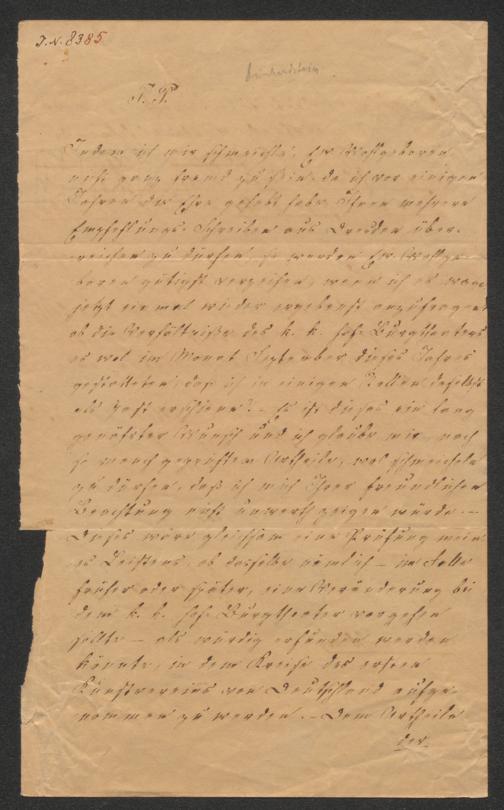 J.N. 8385
Deinhardstein
P. P.
Indem ich mir schmeichle, Ew Wohlgeboren
nicht ganz fremd zu sein, da ich vor einigen
Jahren die Ehre gehabt habe Ihnen mehrere
Empfehlungs-Schreiben aus Dresden über-
reichen zu dürfen, so werden Ew Wohlge-
boren gütigst verzeihen, wenn ich es wage
jetzt ein mal wieder ergebenst anzufragen
ob die Verhältnisse des k. k. Hof-Burgtheaters
es wol im Monat September dieses Jahres
gestatteten, daß ich in einigen Rollen daselbst
als Gast erschiene? – Es ist dieses ein lang
genährter Wunsch und ich glaube mir, nach
so manch geprüftem Urtheile, wol schmeicheln
zu dürfen, daß ich mich Ihrer freundlichen
Beachtung nicht unwerth zeigen würde. –
Dieses wäre gleichsam eine Prüfung mein
es Leistens, ob dasselbe nämlich – im Falle
früher oder später, eine Veränderung bei
dem k. k. Hof-Burgtheater vorgehen
sollte – als würdig erfunden werden
könnte, in dem Kreise des ersten
Kunstvereins von Deutschland aufge-
nommen zu werden. – Dem Urtheile
der